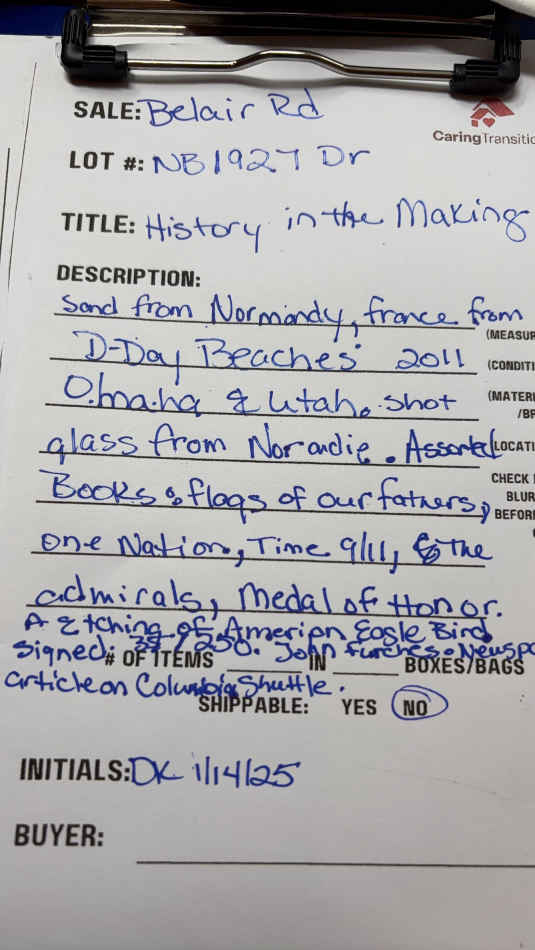 SALE: Belair Rd
CaringTransitio
LOT #: NB1927 Dr
TITLE: History in the Making
DESCRIPTION:
Sand from Normandy, france from
(MEASUR
D-Day Beaches 2011
(CONDITI
Omaha & Utah. shot
(MATERI
/BR
glass from Normandie. Assorted
LOCATI
CHECK
Books: flags of our fathers,
BLUR
BEFOR
One Nation, Time 9/11, & The
admirals, Medal of Honor.
A Etching of Amerian Eagle Bird
Signed: 39/250. John furches. Newspa
# OF ITEMS IN BOXES/BAGS
article on Columbia Shuttle.
SHIPPABLE: YES NO
INITIALS: DK 1/14/25
BUYER: